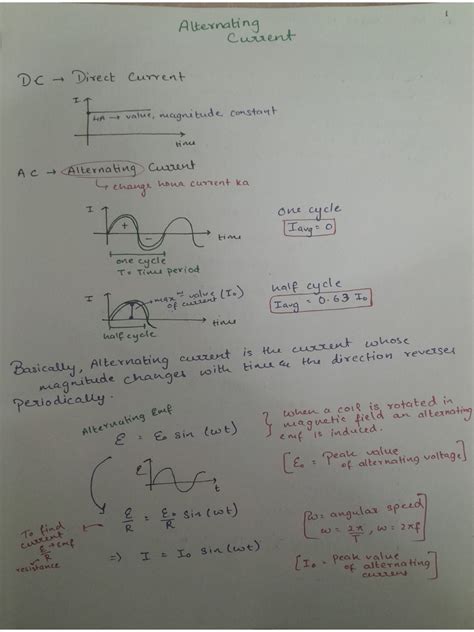 1
Alternating
Current
DC → Direct Current
I
4A → value, magnitude constant
time
AC → Alternating Current
↳ change hona current ka
I
+
−
time
one cycle
T = Time period
one cycle
Iavg = 0
I
max^m value
of current (I₀)
time
half cycle
half cycle
Iavg = 0.63 I₀
Basically, Alternating current is the current whose
magnitude changes with time & the direction reverses
Periodically.
Alternating Emf
ε = ε₀ sin (ωt)
When a coil is rotated in
magnetic field an alternating
emf is induced.
[ε₀ = Peak value
of alternating voltage]
ε
t
To find
current
ε → emf
R
resistance
ε/R = ε₀/R sin (ωt)
⇒ I = I₀ sin (ωt)
[ω = angular speed
ω = 2π/T, ω = 2πf]
[I₀ = Peak value
of alternating
current]